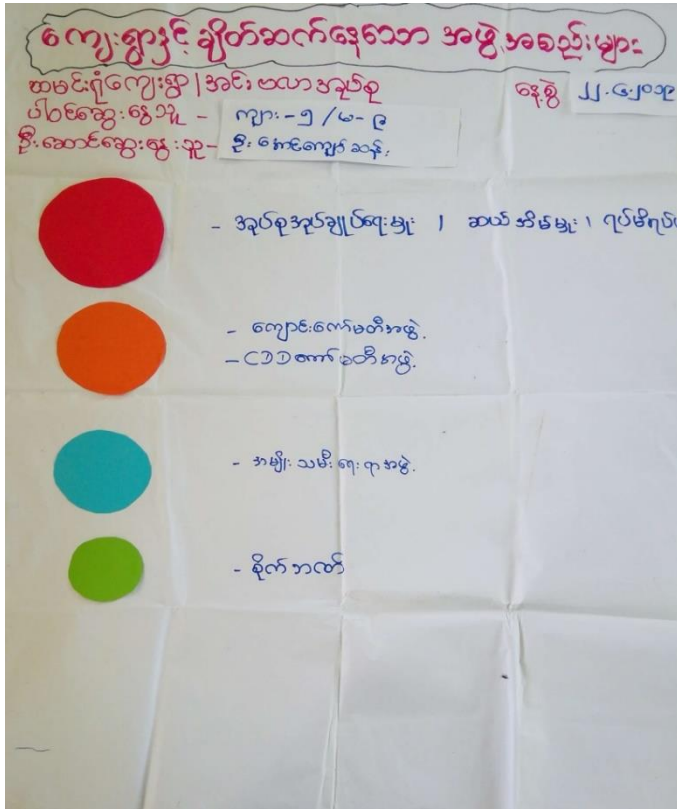 ကျေးရွာနှင့် ချိတ်ဆက်နေသော အဖွဲ့အစည်းများ
ထမင်းရုံကျေးရွာ၊ အင်းဗလာအုပ်စု နေ့စွဲ ၂၂.၄.၂၀၁၉
ပါဝင်ဆွေးနွေးသူ - ကျား-၅ / မ-၉
ဦးဆောင်ဆွေးနွေးသူ- ဦးအောင်ကျော်ဆန်း
- အုပ်စုအုပ်ချုပ်ရေးမှူး ၊ ဆယ်အိမ်မှူး ၊ ရပ်မိရပ်
- ကျောင်းကော်မတီအဖွဲ့.
- CDDကော်မတီအဖွဲ့.
- အမျိုးသမီးရေးရာအဖွဲ့.
- စိုက်ဘဏ်